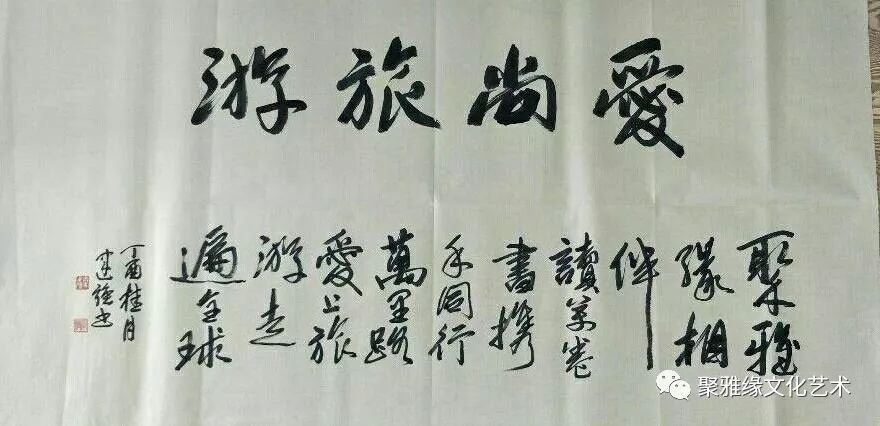 愛尚旅游
聚雅
缘相
伴
讀万卷
書携
手同行
萬里路
愛上旅
游走
遍全球
丁酉桂月
建强书
聚雅缘文化艺术